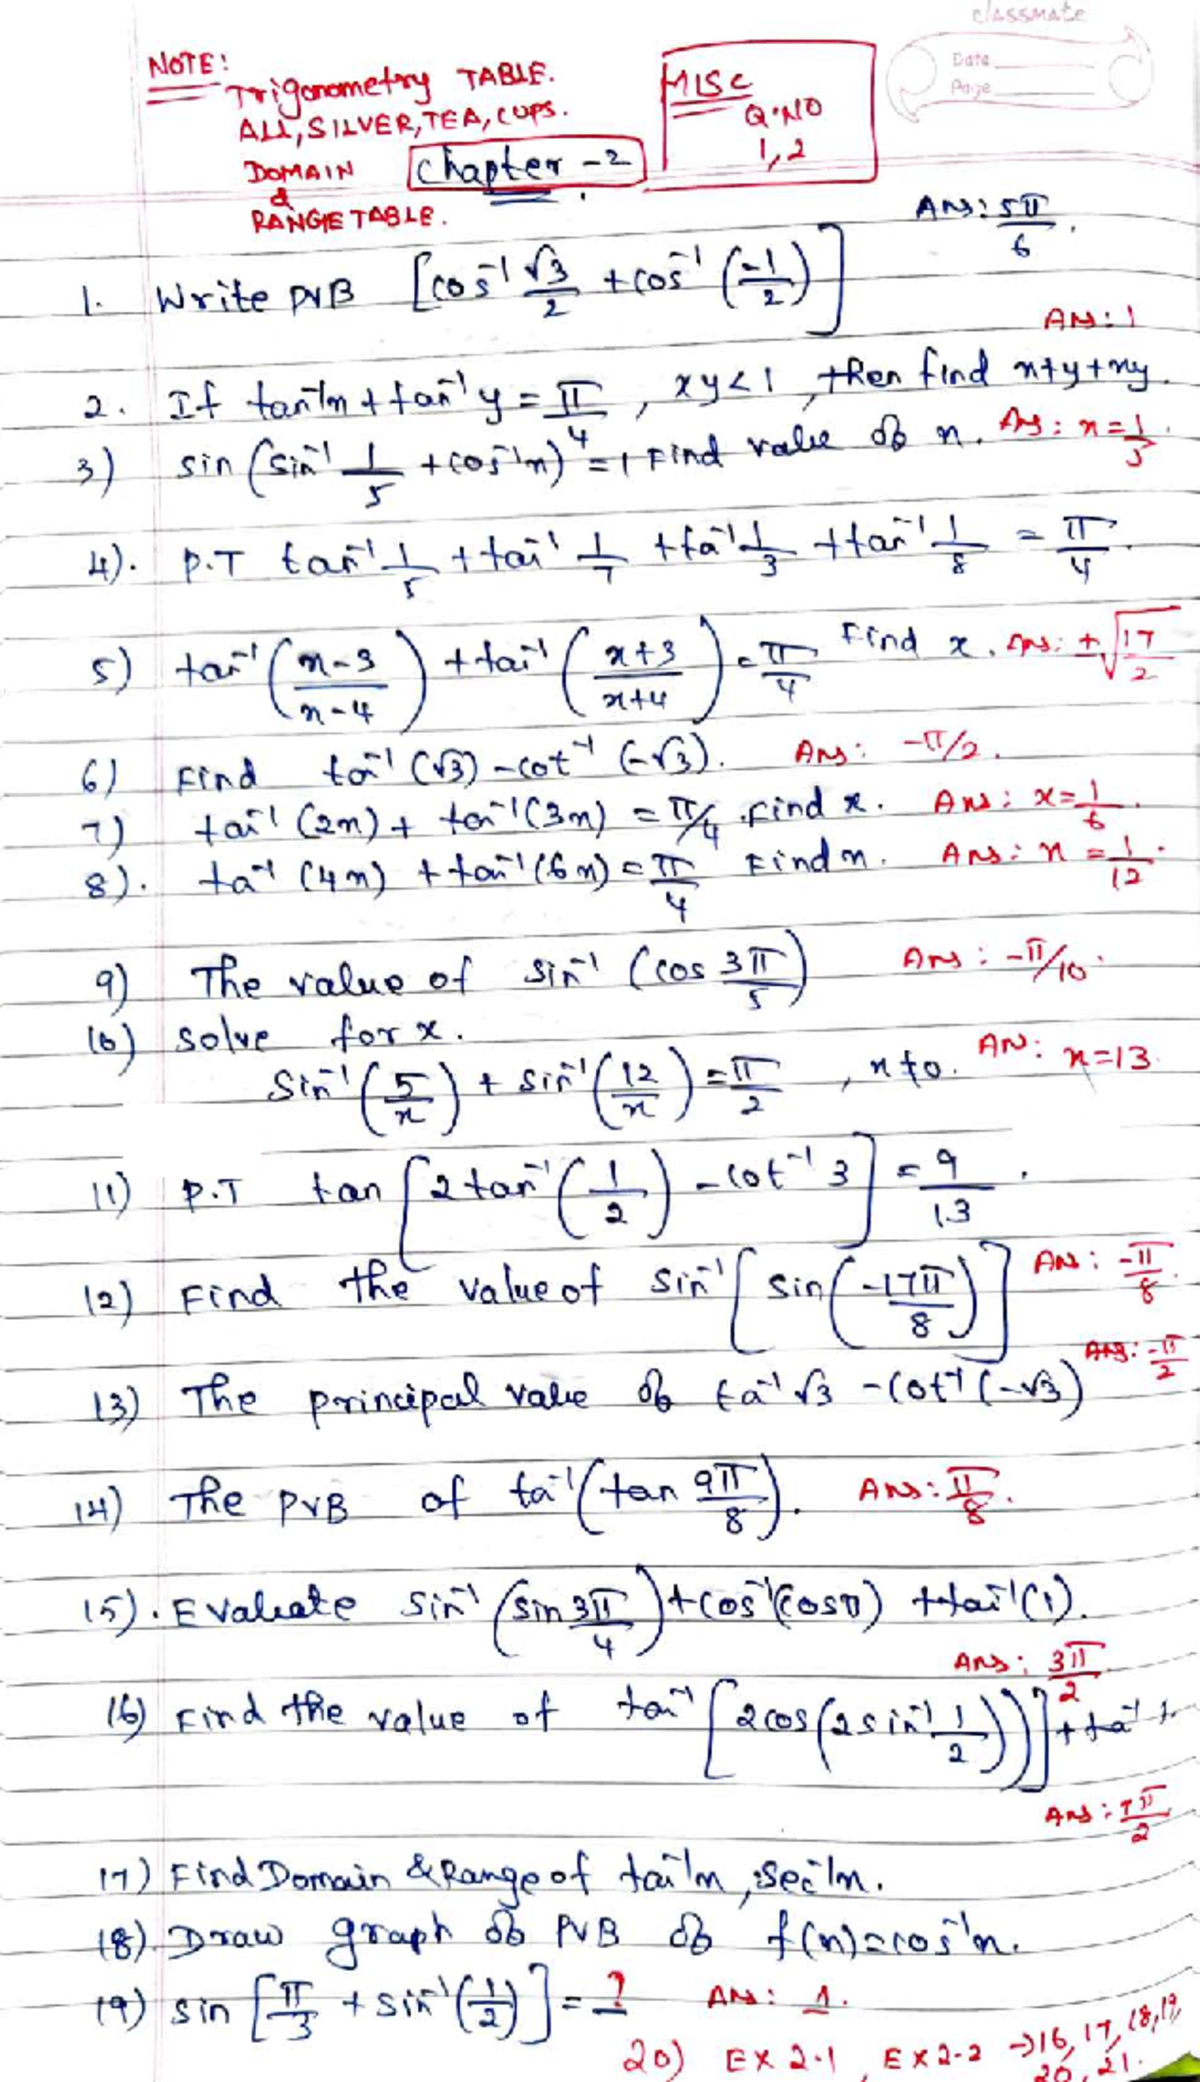 classmate
Date
Page
NOTE:
Trigonometry TABLE.
ALL, SILVER, TEA, CUPS.
DOMAIN
&
RANGE TABLE.
MISC
Q.NO
1, 2
Chapter - 2
Ans: 5π/6.
1. Write PVB [cos⁻¹ √3/2 + cos⁻¹ (-1/2)]
Ans: 1
2. If tan⁻¹x + tan⁻¹y = π/4, xy<1, then find x+y+xy.
3) sin (sin⁻¹ 1/5 + cos⁻¹x) = 1 Find value of x. Ans: x = 1/5.
4). P.T tan⁻¹ 1/5 + tan⁻¹ 1/7 + ta⁻¹ 1/3 + tan⁻¹ 1/8 = π/4.
5) tan⁻¹ (x-3/x-4) + tan⁻¹ (x+3/x+4) = π/4 Find x. Ans: ±√17/2
6) Find tan⁻¹ (√3) - cot⁻¹ (-√3). Ans: -π/2.
7) tan⁻¹ (2x) + tan⁻¹ (3x) = π/4. Find x. Ans: x = 1/6.
8). ta⁻¹ (4x) + tan⁻¹ (6x) = π/4 Find x. Ans: x = 1/12.
9) The value of sin⁻¹ (cos 3π/5) Ans: -π/10.
10) Solve for x.
Sin⁻¹ (5/x) + sin⁻¹ (12/x) = π/2, x≠0. AN: x=13.
11) P.T tan [2 tan⁻¹ (1/2) - cot⁻¹ 3] = 9/13.
12) Find the value of sin⁻¹ [sin (-17π/8)] AN: -π/8.
13) The principal value of ta⁻¹ √3 - cot⁻¹ (-√3) Ans: -π/2
14) The PVB of ta⁻¹ (tan 9π/8). Ans: π/8.
15). Evaluate sin⁻¹ (sin 3π/4) + cos⁻¹ (cos π) + tan⁻¹ (1).
Ans: 3π/2
16) Find the value of tan⁻¹ [2 cos (2 sin⁻¹ 1/2))] + ta⁻¹
17) Find Domain & Range of tan⁻¹x, sec⁻¹x.
18). Draw graph of PVB of f(x) = cos⁻¹x.
19) sin [π/3 + sin⁻¹ (1/2)] = ? Ans: 1.
20) Ex 2.1, Ex 2.2 → 16, 17, 18, 19,
20, 21.